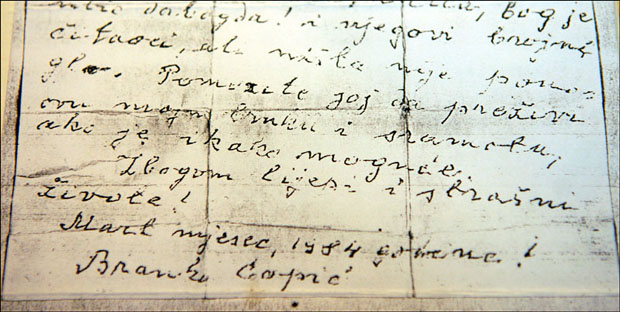 bog je
dabogda! i njegovi brojni
čitaoci, ali ništa nije pomo-
glo. Pomozite joj da preživi
ovu moju bruku i sramotu,
ako je ikako moguće.
Zbogom lijepi i strašni
živote!
Mart mjesec, 1984 godine!
Branko Ćopić